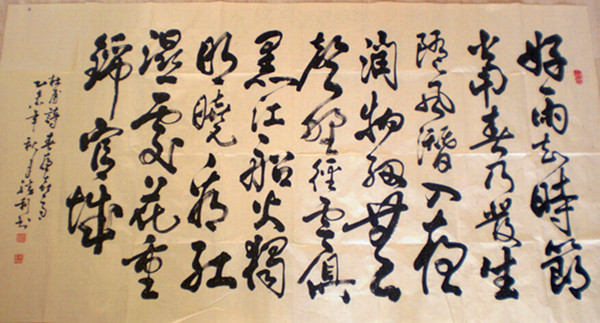 好雨知時節
當春乃發生
隨風潛入夜
潤物細無
聲野徑雲俱
黑江船火獨
明曉看紅
濕處花重
錦官城
杜甫詩春夜喜雨
乙未年秋月勝利书